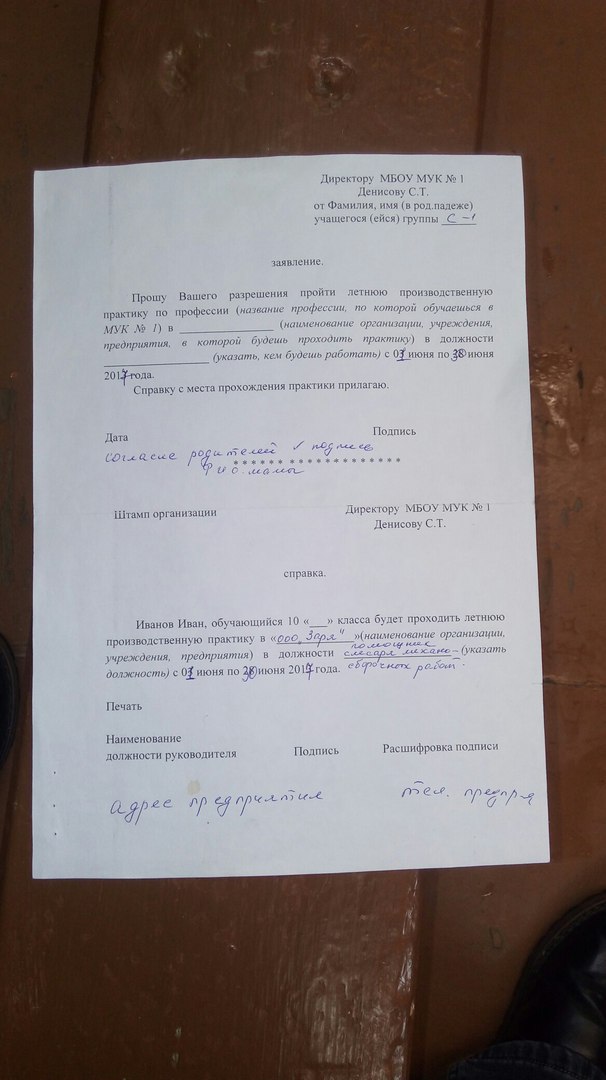 Директору МБОУ МУК № 1
Денисову С.Т.
от Фамилия, имя (в род.падеже)
учащегося (ейся) группы С-1
заявление.
Прошу Вашего разрешения пройти летнюю производственную
практику по профессии (название профессии, по которой обучаешься в
МУК № 1) в ________________ (наименование организации, учреждения,
предприятия, в которой будешь проходить практику) в должности
__________________ (указать, кем будешь работать) с 01 июня по 30 июня
2017 года.
Справку с места прохождения практики прилагаю.
Дата Подпись
согласие родителей √ подпись
* * * * * * * * * * * * * * * * * * *
ф и о. мамы
Штамп организации Директору МБОУ МУК № 1
Денисову С.Т.
справка.
Иванов Иван, обучающийся 10 «___» класса будет проходить летнюю
производственную практику в «ооо "Заря"»(наименование организации,
помощник
учреждения, предприятия) в должности слесаря механо- (указать
должность) с 01 июня по 30 июня 2017 года. сборочных работ.
Печать
Наименование
должности руководителя Подпись Расшифровка подписи
адрес предприятия тел. предпря